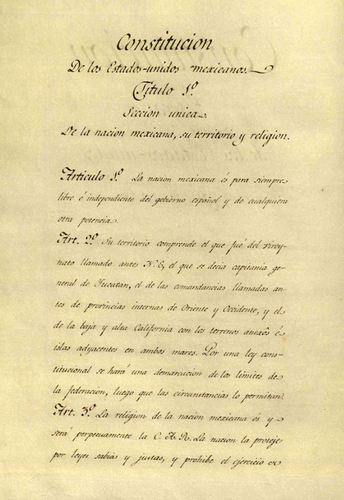 Constitucion
De los Estados-unidos mexicanos.
Titulo 1º
Seccion unica
De la nacion mexicana, su territorio y religion.
Articulo 1º. La nacion mexicana es para siempre
libre é independiente del gobierno español y de cualquiera
otra potencia.
Art. 2º. Su territorio comprende el que fué del virey-
nato llamado antes N. E, el que se decia capitania ge-
neral de Yucatan, el de las comandancias llamadas an-
tes de provincias internas de Oriente y Occidente, y el
de la baja y alta California con los terrenos anexôs é
islas adyacentes en ambos mares. Por una ley cons-
titucional se hará una demarcacion de los limites de
la federacion, luego que las circunstancias lo permitan.
Art. 3º. La religion de la nacion mexicana és y
será perpetuamente la C. A. R. La nacion la proteje
por leyes sabias y justas, y prohibe el ejercicio